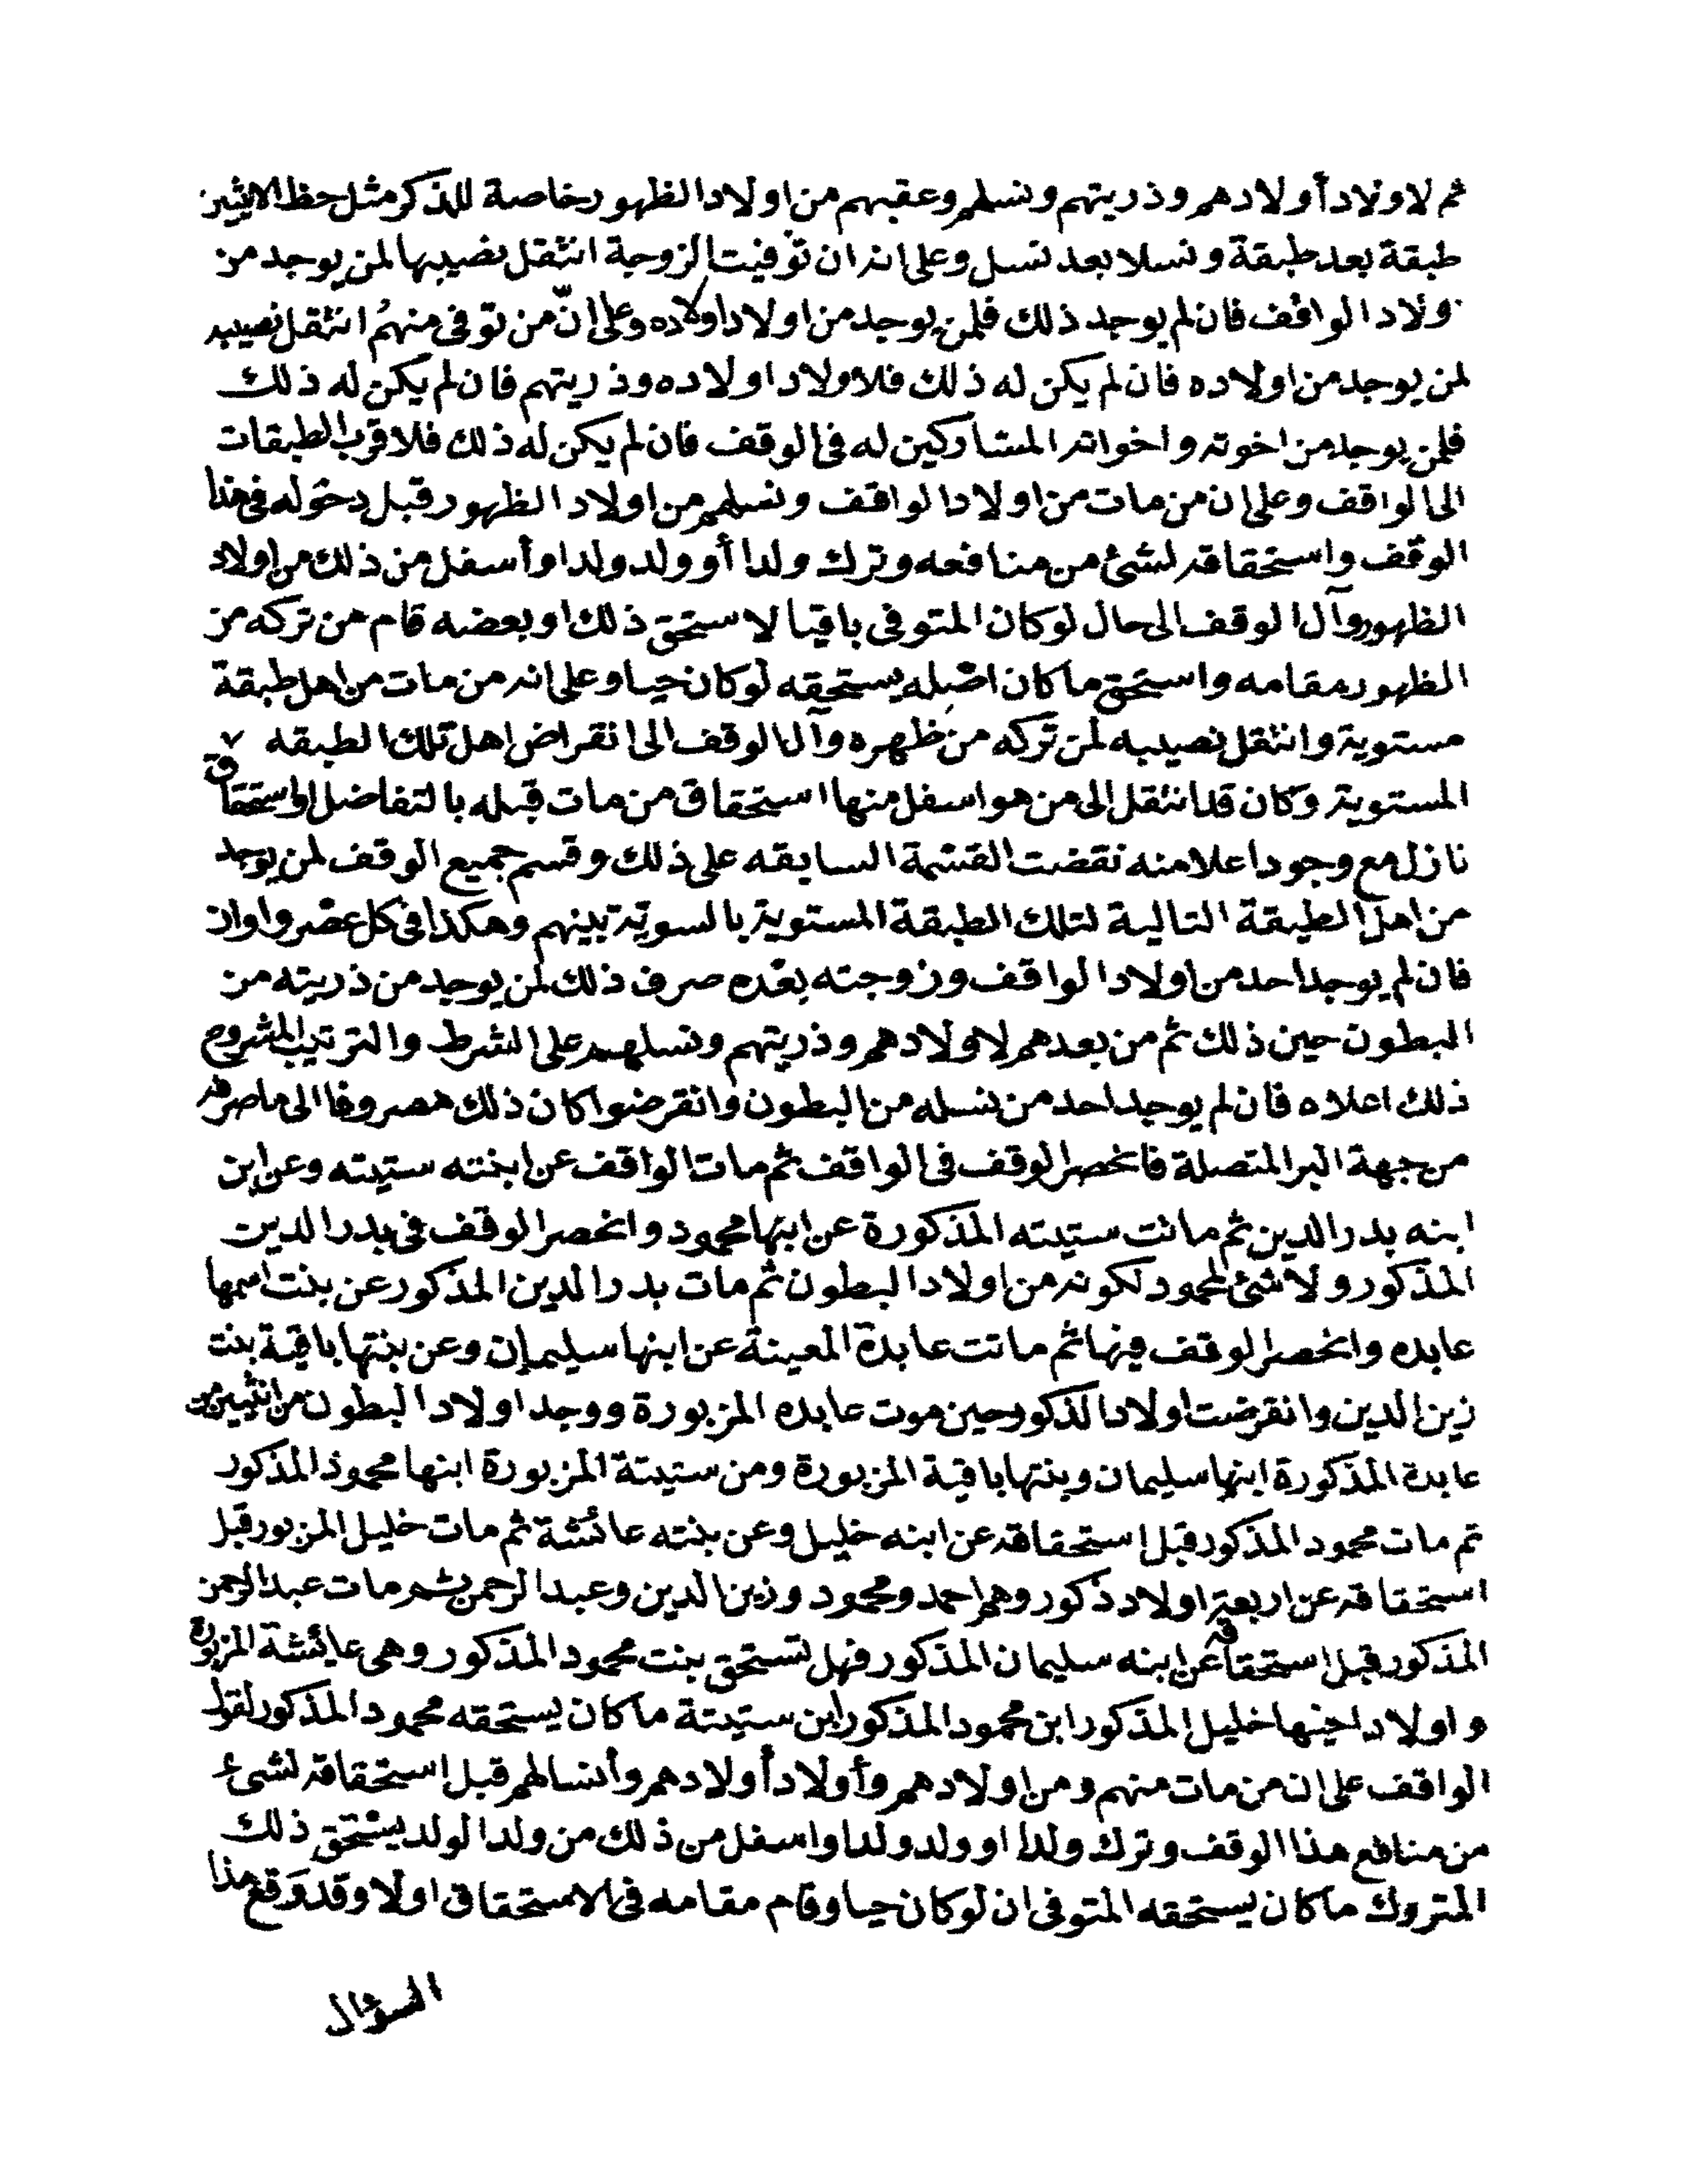 ثم لاولاد أولادهم وذريتهم ونسلهم وعقبهم من اولاد الظهور خاصة للذكر مثل حظ الانثيين
طبقة بعد طبقة ونسلا بعد نسل وعلى انه ان توفيت الزوجة انتقل نصيبها لمن يوجد من
اولاد الواقف فان لم يوجد ذلك فلمن يوجد من اولاد اولاده وعلى انّ من توفى منهُم انتقل نصيبه
لمن يوجد من اولاده فان لم يكن له ذلك فلاولاد اولاده وذريتهم فان لم يكن له ذلك
فلمن يوجد من اخوته واخواته المشاركين له فى الوقف فان لم يكن له ذلك فلاقرب الطبقات
الى الواقف وعلى ان من مات من اولاد الواقف ونسلهم من اولاد الظهور قبل دخوله فى هذا
الوقف واستحقاقه لشئ من منافعه وترك ولدا أو ولد ولد او أسفل من ذلك من اولاد
الظهور وآل الوقف الى حال لو كان المتوفى باقيا لاستحق ذلك او بعضه قام من تركه من
الظهور مقامه واستحق ما كان اصله يستحقه لو كان حيا وعلى انه من مات من اهل طبقة
مستوية وانتقل نصيبه لمن تركه من ظهره وآل الوقف الى انقراض اهل تلك الطبقه
المستوية وكان قد انتقل الى من هو اسفل منها استحقاق من مات قبله بالتفاضل او استحقاق
نازل مع وجود اعلا منه نقضت القسمة السابقه على ذلك وقسم جميع الوقف لمن يوجد
من اهل الطبقة التالية لتلك الطبقة المستوية بالسوية بينهم وهكذا فى كل عصر واوان
فان لم يوجد احد من اولاد الواقف وزوجته بعده صرف ذلك لمن يوجد من ذريته من
البطون حين ذلك ثم من بعدهم لاولادهم وذريتهم ونسلهم على الشرط والترتيب المشروح
ذلك اعلاه فان لم يوجد احد من نسله من البطون وانقرضوا كان ذلك مصروفا الى ما صرفه
من جهة البر المتصلة فانحصر الوقف فى الواقف ثم مات الواقف عن ابنته ستيته وعن ابن
ابنه بدر الدين ثم ماتت ستيته المذكورة عن ابنها محمود وانحصر الوقف فى بدر الدين
المذكور ولا شئ لمحمود لكونه من اولاد البطون ثم مات بدر الدين المذكور عن بنت اسمها
عابده وانحصر الوقف فيها ثم ماتت عابدة المعينة عن ابنها سليمان وعن بنتها باقية بنت
زين الدين وانقرضت اولاد الذكور حين موت عابده المزبورة ووجد اولاد البطون من انثيين من
عابدة المذكورة ابنها سليمان وبنتها باقية المزبورة ومن ستيتة المزبورة ابنها محمود المذكور
ثم مات محمود المذكور قبل استحقاقه عن ابنه خليل وعن بنته عائشة ثم مات خليل المزبور قبل
استحقاقه عن اربعة اولاد ذكور وهم احمد ومحمود وزين الدين وعبد الرحمن ثم مات عبد الرحمن
المذكور قبل استحقاقه عن ابنه سليمان المذكور فهل تستحق بنت محمود المذكور وهى عايئشة المزبورة
واولاد اخيها خليل المذكور ابن محمود المذكور ابن ستيتة ما كان يستحقه محمود المذكور لقول
الواقف على ان من مات منهم ومن اولادهم وأولاد أولادهم وأنسالهم قبل استحقاقه لشئ
من منافع هذا الوقف وترك ولدا او ولد ولد واسفل من ذلك من ولد الولد يستحق ذلك
المتروك ما كان يستحقه المتوفى ان لو كان حيا وقام مقامه فى الاستحقاق اولا وقد وقع هذا
السؤال